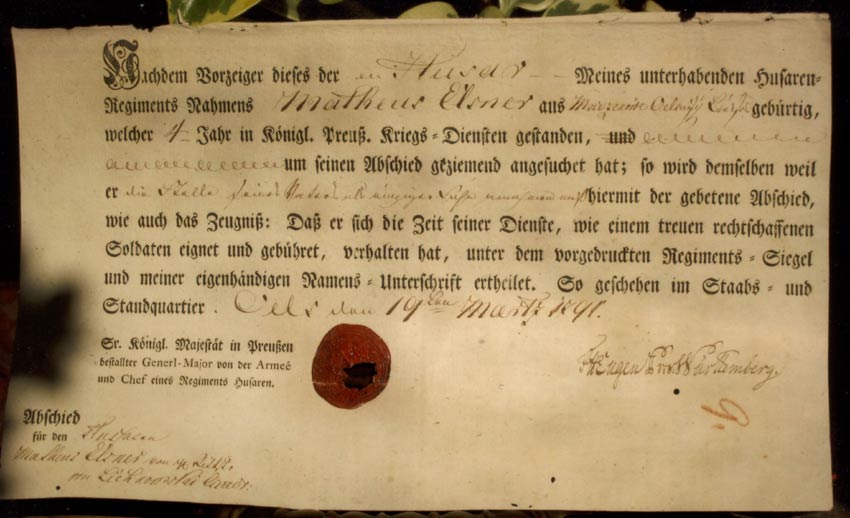 Nachdem Vorzeiger dieses der Husar Meines unterhabenden Husaren-
Regiments Nahmens Matheus Elsner aus gebürtig,
welcher 4 Jahr in Königl. Preuß. Kriegs-Diensten gestanden, und
um seinen Abschied geziemend angesuchet hat; so wird demselben weil
er die Stelle seines Vaters als einziger Sohn annehmen muß hiermit der gebetene Abschied,
wie auch das Zeugniß: Daß er sich die Zeit seiner Dienste, wie einem treuen rechtschaffenen
Soldaten eignet und gebühret, verhalten hat, unter dem vorgedruckten Regiments-Siegel
und meiner eigenhändigen Namens-Unterschrift ertheilet. So geschehen im Staabs- und
Standquartier. Oels den 19ten Martz
Sr. Königl. Majestät in Preußen
bestallter Generl-Major von der Armeé
und Chef eines Regiments Husaren.
Eugen Württemberg
Abschied
für den Husaren
Matheus Elsner von